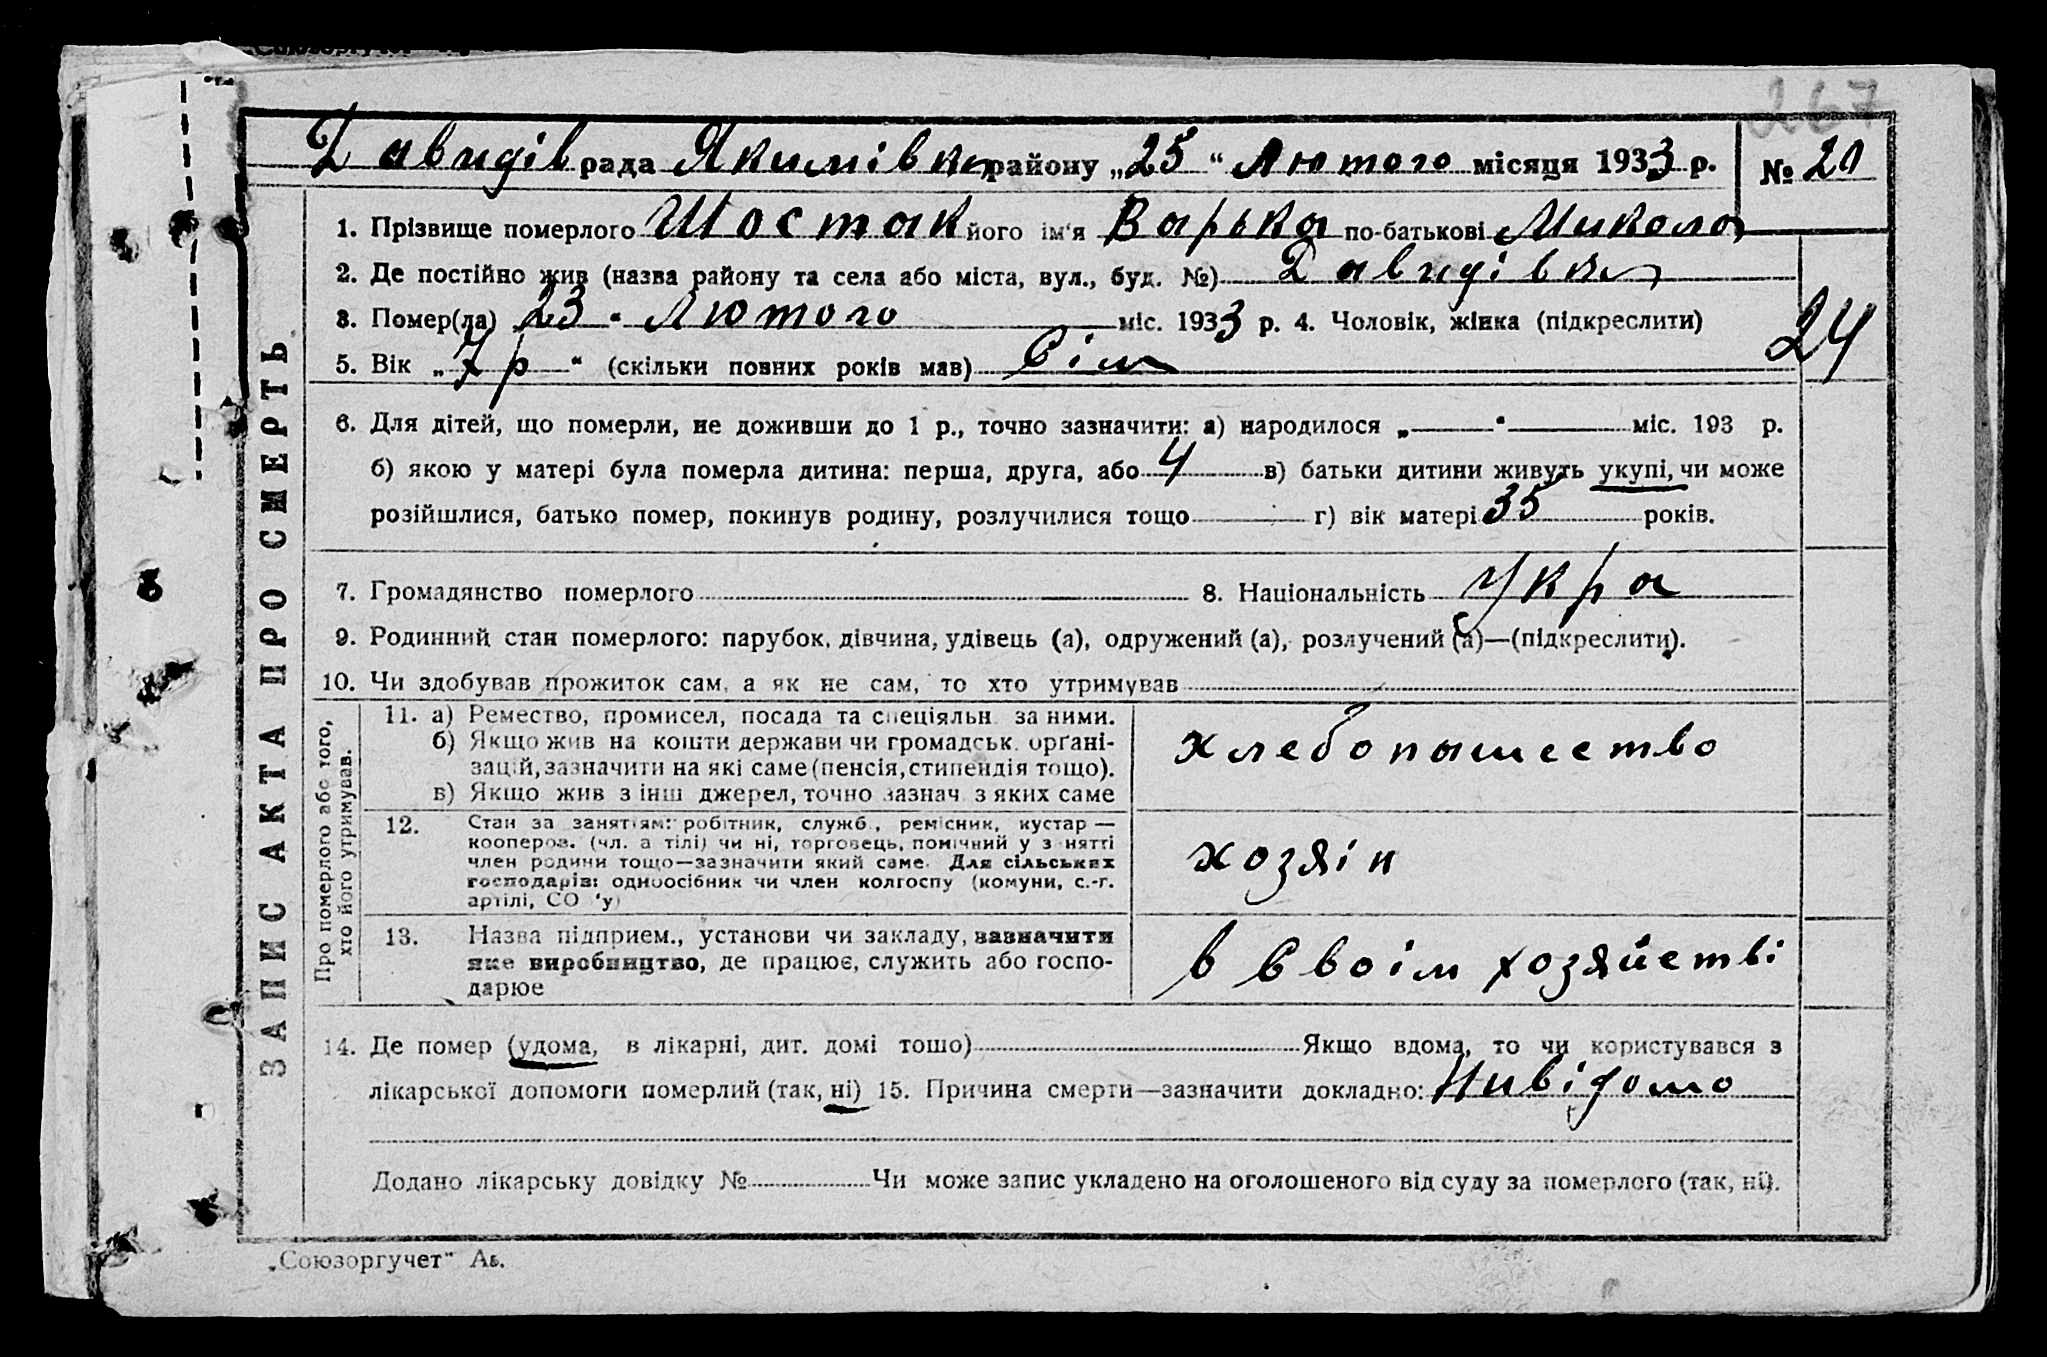 267
Давидів рада Якимівки району „25“ Лютого місяця 1933 р. № 20
1. Прізвище померлого Шостак його ім'я Варька по-батькові Микола
2. Де постійно жив (назва району та села або міста, вул., буд. №) Давидівка
3. Помер(ла) 23 " Лютого міс. 1933 р. 4. Чоловік, жінка (підкреслити)
24
5. Вік „7 р“ (скільки повних років мав) Сім
6. Для дітей, що померли, не доживши до 1 р., точно зазначити: а) народилося „—“ — міс. 193 р.
б) якою у матері була померла дитина: перша, друга, або 4 в) батьки дитини живуть укупі, чи може
розійшлися, батько помер, покинув родину, розлучилися тощо г) вік матері 35 років.
7. Громадянство померлого 8. Національність Укра
9. Родинний стан померлого: парубок, дівчина, удівець (а), одружений (а), розлучений (а)—(підкреслити).
10. Чи здобував прожиток сам, а як не сам, то хто утримував
ЗАПИС АКТА ПРО СМЕРТЬ
Про померлого або того,
хто його утримував.
11. а) Ремество, промисел, посада та спеціяльн. за ними.
б) Якщо жив на кошти держави чи громадськ. орґані-
зацій, зазначити на які саме (пенсія, стипендія тощо).
в) Якщо жив з інш джерел, точно зазнач. з яких саме
хлебопашество
12. Стан за заняттям: робітник, служб., ремісник, кустар —
коопером. (чл. а тілі) чи ні, торговець, помічний у з нятті
член родини тощо—зазначити який саме. Для сільських
господарів: одноосібник чи член колгоспу (комуни, с.-г.
артілі, СО 'у)
хозяін
13. Назва підприєм., установи чи закладу, зазначити
яке виробництво, де працює, служить або госпо-
дарює
в своім хозяйстві
14. Де помер (удома, в лікарні, дит. домі тощо) Якщо вдома, то чи користувався з
лікарської допомоги померлий (так, ні) 15. Причина смерти—зазначити докладно: Нивідомо
Додано лікарську довідку № Чи може запис укладено на оголошеного від суду за померлого (так, ні).
„Союзоргучет“ Ав.